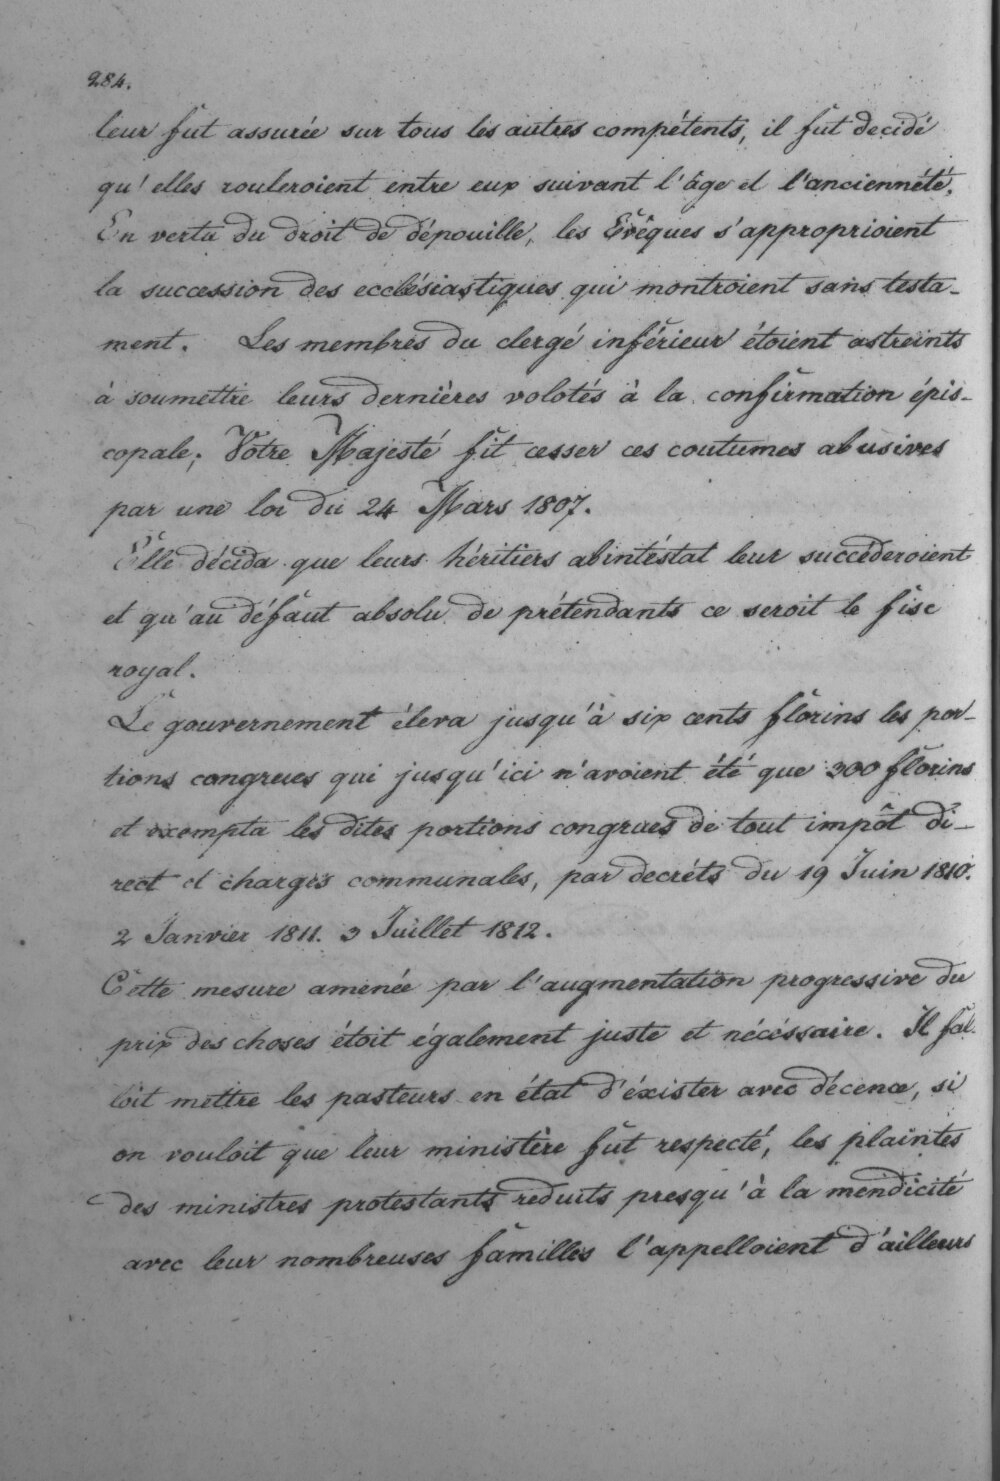 284.
leur fut assurée sur tous les autres compétents, il fut decidé
qu'elles rouleroient entre eux suivant l'âge et l'anciennété.
En vertu du droit de dépouille, les Evêques s'approprioient
la succession des ecclésiastiques qui montroient sans testa-
ment. Les membres du clergé inférieur étoient astreints
à soumettre leurs dernières volotés à la confirmation épis-
copale; Votre Majesté fit cesser ces coutumes abusives
par une loi du 24 Mars 1807.
Elle décida que leurs héritiers abintéstat leur succéderoient
et qu'au défaut absolu de prétendants ce seroit le fisc
royal.
Le gouvernement éleva jusqu'à six cents florins les por-
tions congrues qui jusqu'ici n'avoient été que 300 florins
et exempta les dites portions congrues de tout impôt di-
rect et charges communales, par decréts du 19 Juin 1810.
2 Janvier 1811. 3 Juillet 1812.
Cette mesure amenée par l'augmentation progressive du
prix des choses étoit également juste et nécéssaire. Il fal-
loit mettre les pasteurs en état d'éxister avec décence, si
on vouloit que leur ministère fut respecté, les plaintes
des ministres protestants reduits presqu'à la mendicité
avec leur nombreuses familles l'appelloient d'ailleurs